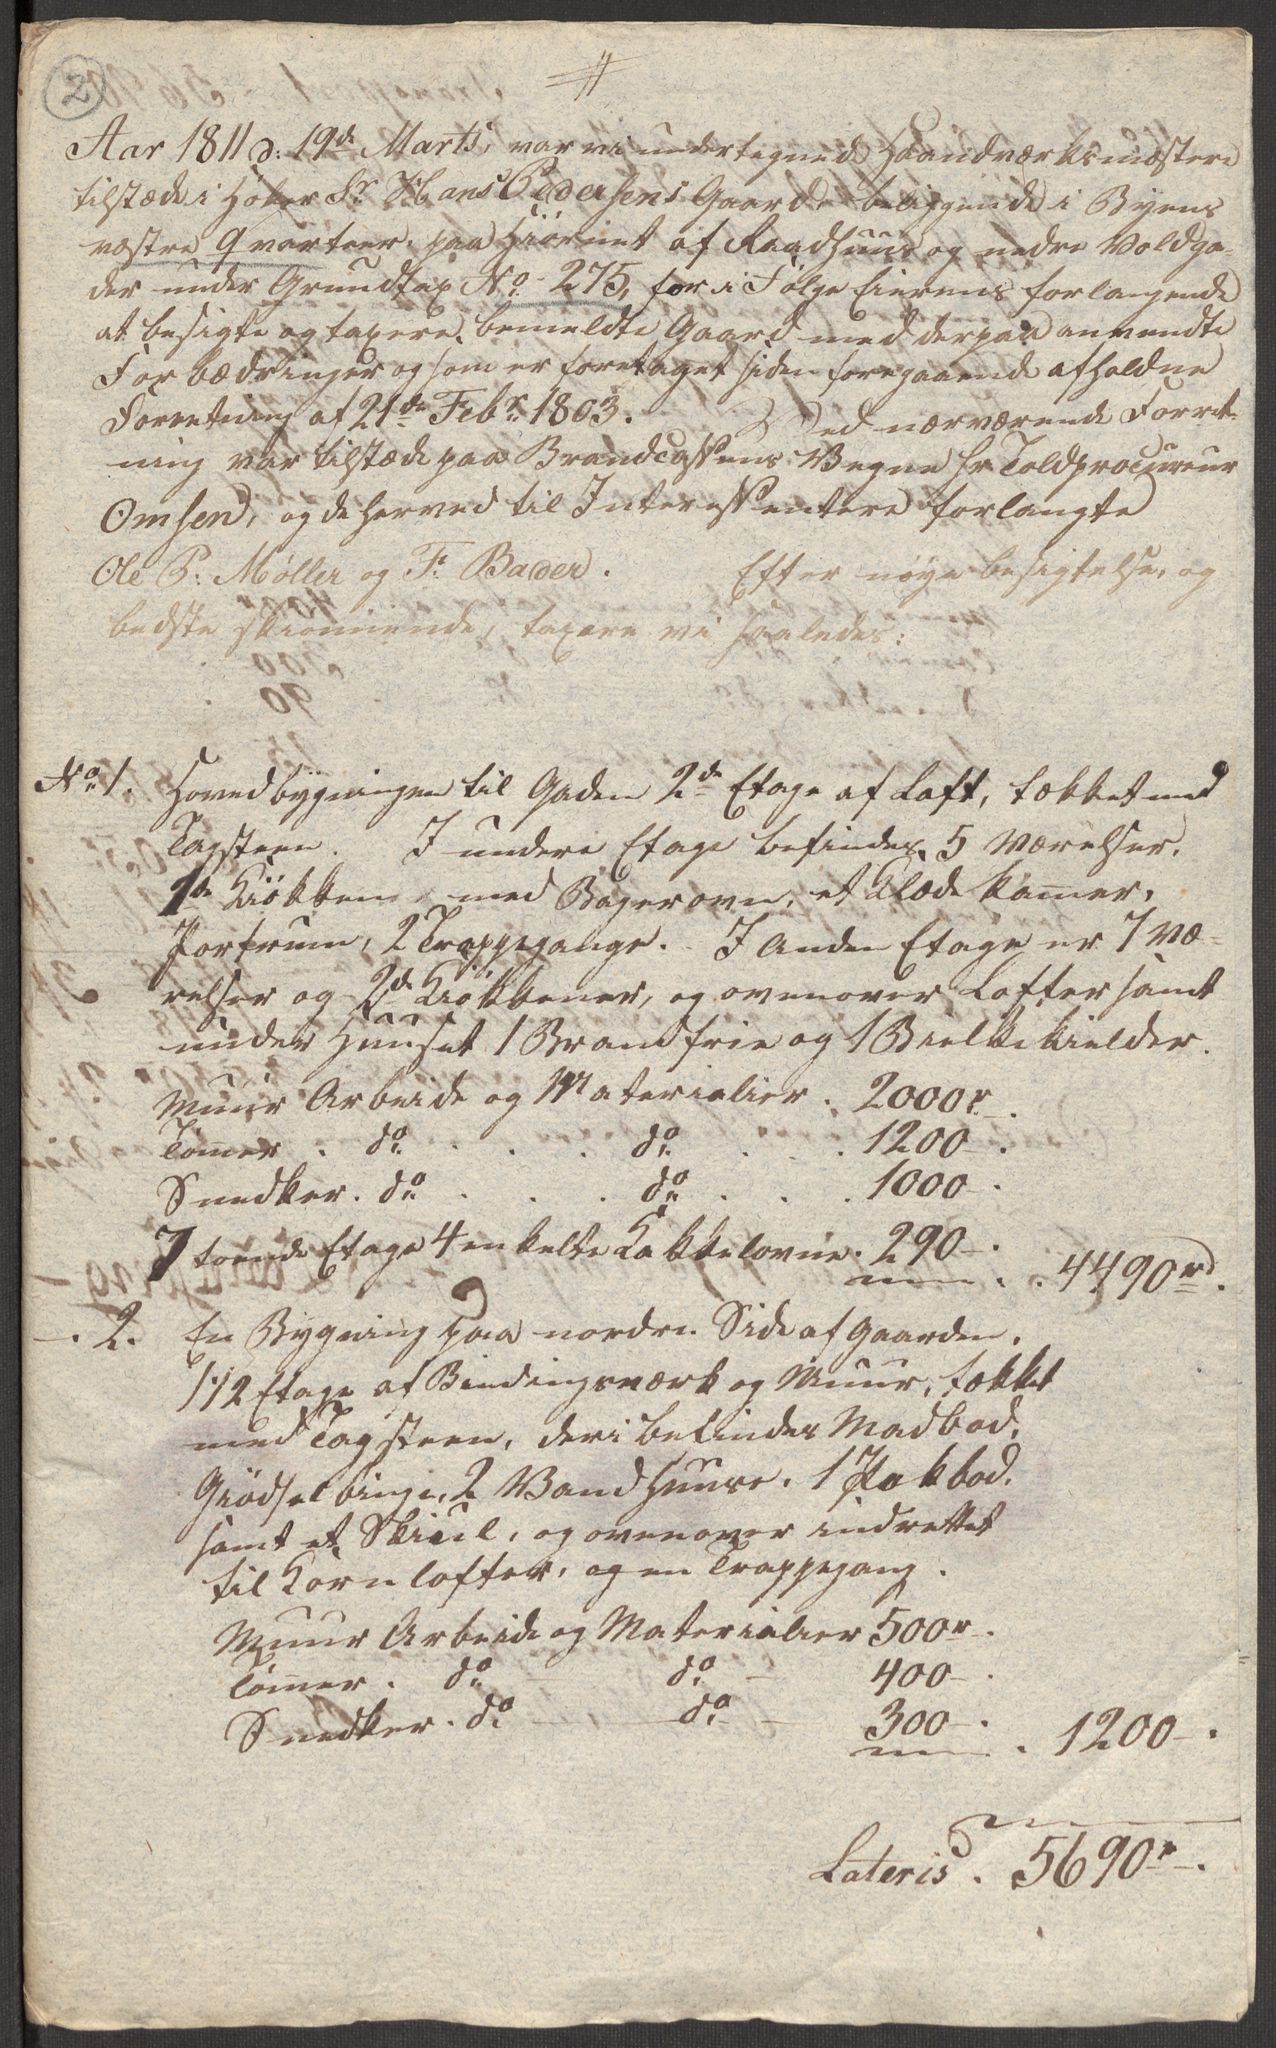 2
Aar 1811 d: 19de Marts, var vi undertegnede Haandværksmæstere
tilstæde i Höker Sr. Hans Pedersens Gaard, beliggende i Byens
væstre Qvarteer, paa Hiörnet af Raadhuus og nedre Voldga-
der under Grundtax No. 275, for i Fölge Eierens forlangende
at besigte og taxere, bemeldte Gaard med derpaa anvendte
Forbædringer og som er foretaget siden foregaaende afholdne
Forretning af 21de Febr. 1803. Ved nærværende Forret-
ning var tilstæde paa Brandcassens Vegne Hr. Toldprocureur
Omsen, og de herved til Interessentere forlangte
Ole P: Møller og F: Bader. Efter nøye besigtelse, og
bedste skiönnende, taxere vi saaledes:
No. 1. Hovedbygningen til Gaden 2de Etage af Laft, tækket med
Tagsteen. I undere Etage befindes 5 Værelser,
1de Kiökken med Bagerovn, et Klædekamer,
Portrum, 2 Trappegange. I Anden Etage er 7 Væ-
relser og 2de Kiökkener, og ovenover Lofter samt
under Huuset 1 Brandfrie og 1 Bielkekielder.
Muur Arbeide og Materialier. 2000r.
Tömer. do. do. 1200 -.
Snedker. do. do. 1000 -.
I toende Etage 4 enkelte Kakkelovne. 290 -. 4490rd.
-. 2. En Bygning paa nordre Side af Gaarden.
1 1/2 Etage af Bindingsværk og Muur, tækket
med Tagsteen, deri befindes Madbod,
Giödselbinge, 2 Vandhuuse, 1 Pakbod,
samt et Skiul, og ovenover indrettet
til Kornlofter, og en Trappegang.
Muur Arbeide og Materialier 500r.
Tömer. do. do. - 400 -.
Snedker. do. do. - 300 -. 1200 -.
Lateris. 5690r.